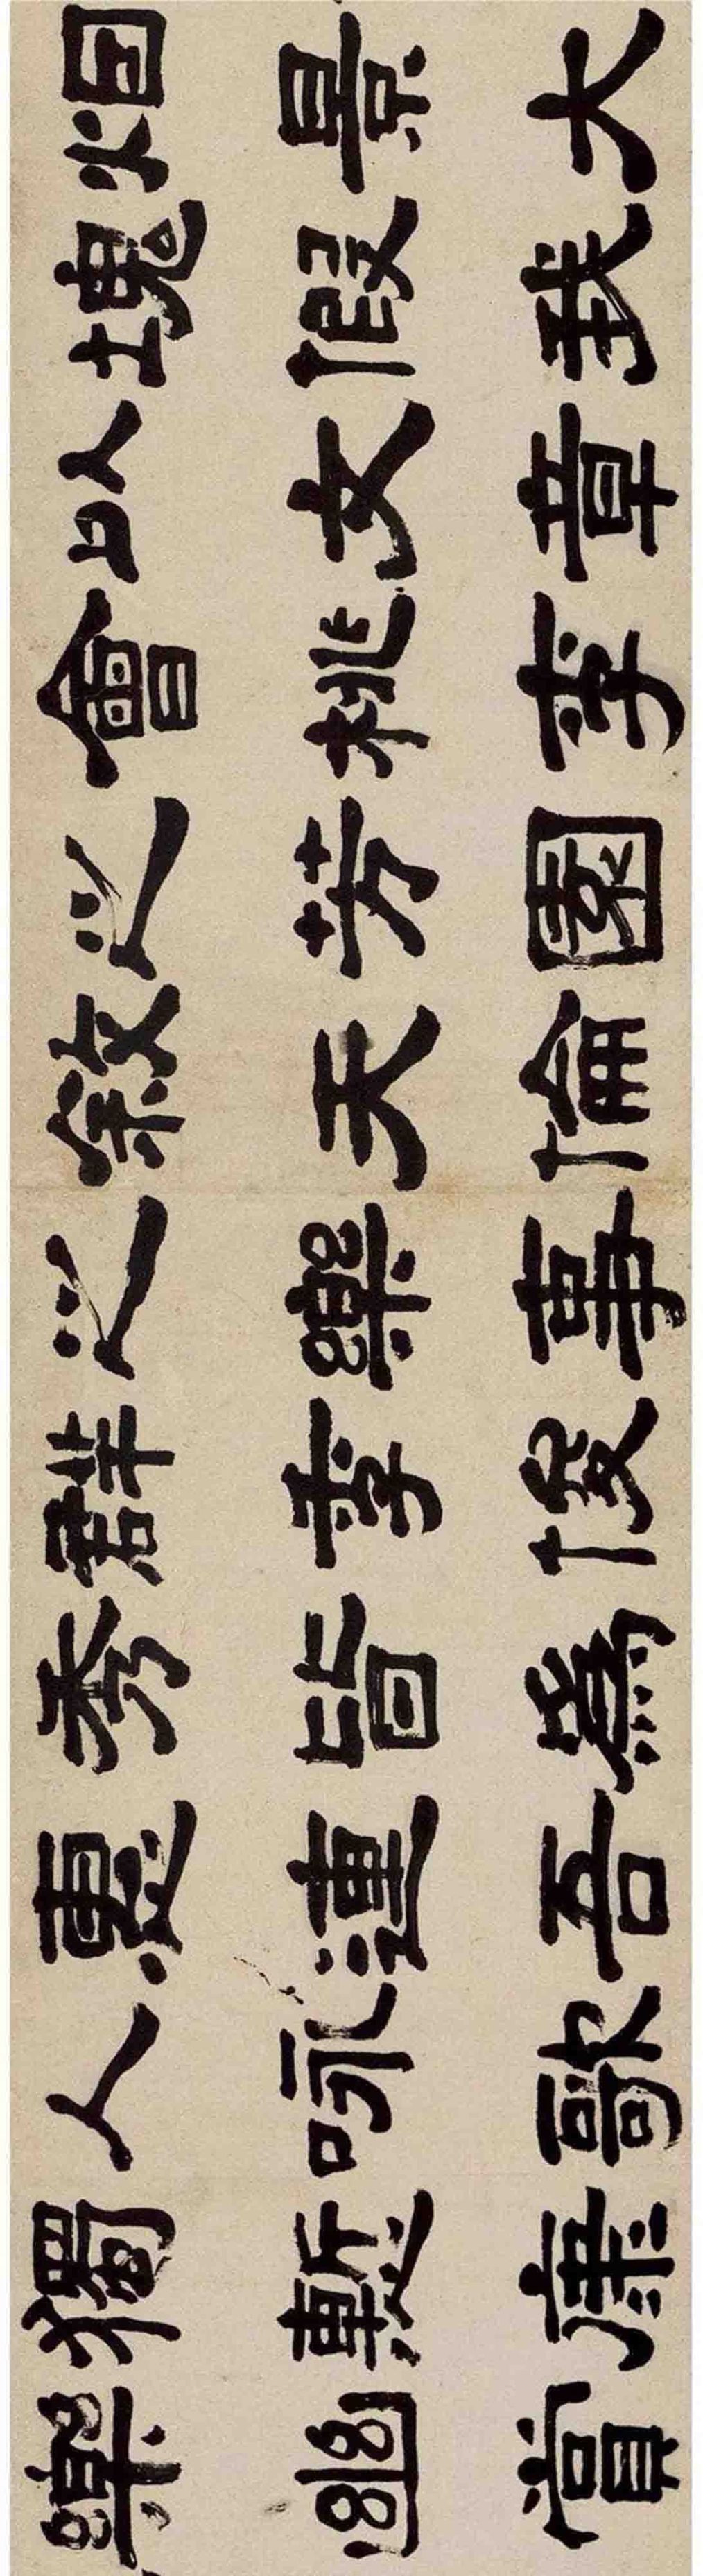 烟景大
塊假我
以文章
會桃李
之芳園
敘天倫
之樂事
群季俊
秀皆爲
惠連吾
人咏歌
獨慙康
樂幽賞